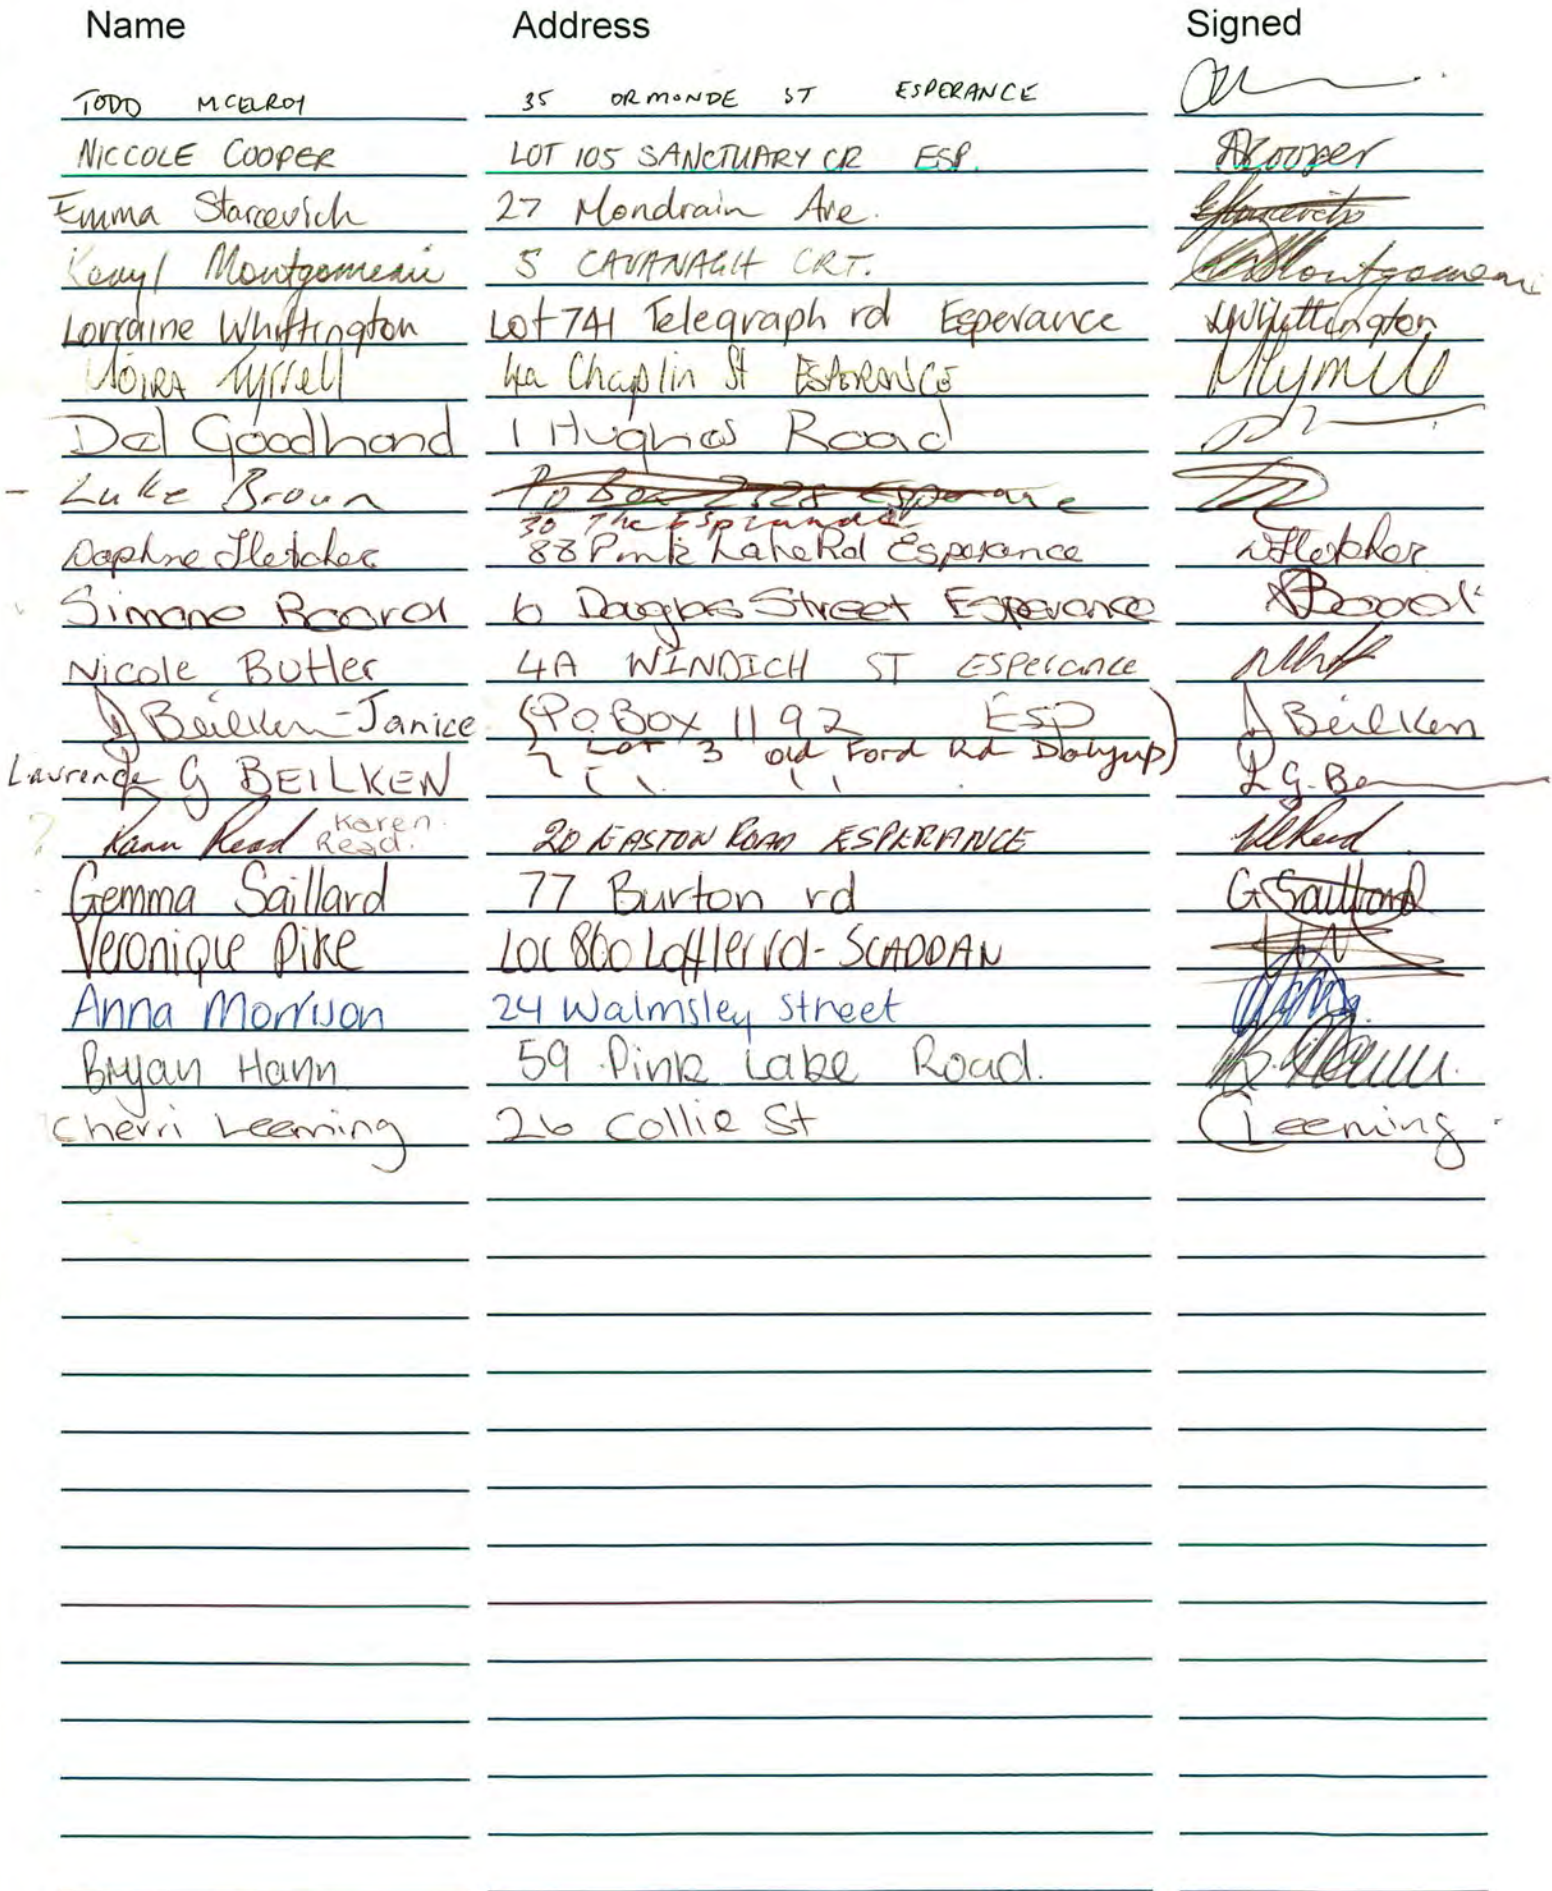 Name Address Signed
TODD MCELROY 35 ORMONDE ST ESPERANCE
NICCOLE COOPER LOT 105 SANCTUARY CR ESP. Cooper
Emma Starcevich 27 Mondrain Ave.
Montgomerie 5 CAVANAGH CRT. Montgomerie
Lorraine Whittington Lot 741 Telegraph rd Esperance Whittington
MOIRA Tyrrell 4a Chaplin St ESPERANCE
Del Goodhand 1 Hughes Road
- Luke Brown Po Box 2328 Esperance
30 The Esplanade
Daphne Fletcher 88 Pink Lake Rd Esperance Fletcher
Simone Board 6 Douglas Street Esperance Board
Nicole Butler 4A WINDICH ST ESPerance
J Beilken - Janice (P.O. Box 1192 ESP J Beilken
Lot 3 old Ford Rd Dalyup)
Laurence G BEILKEN " " L G. Be
? Karen Read Karen Read. 20 EASTON ROAD ESPERANCE Read
Gemma Saillard 77 Burton rd G Saillard
Veronique Pike Loc 860 Loffler rd - SCADDAN
Anna Morrison 24 Walmsley Street
Bryan Hann 59 Pink Lake Road. B. Hann.
Cherri Leeming 26 Collie St C Leeming